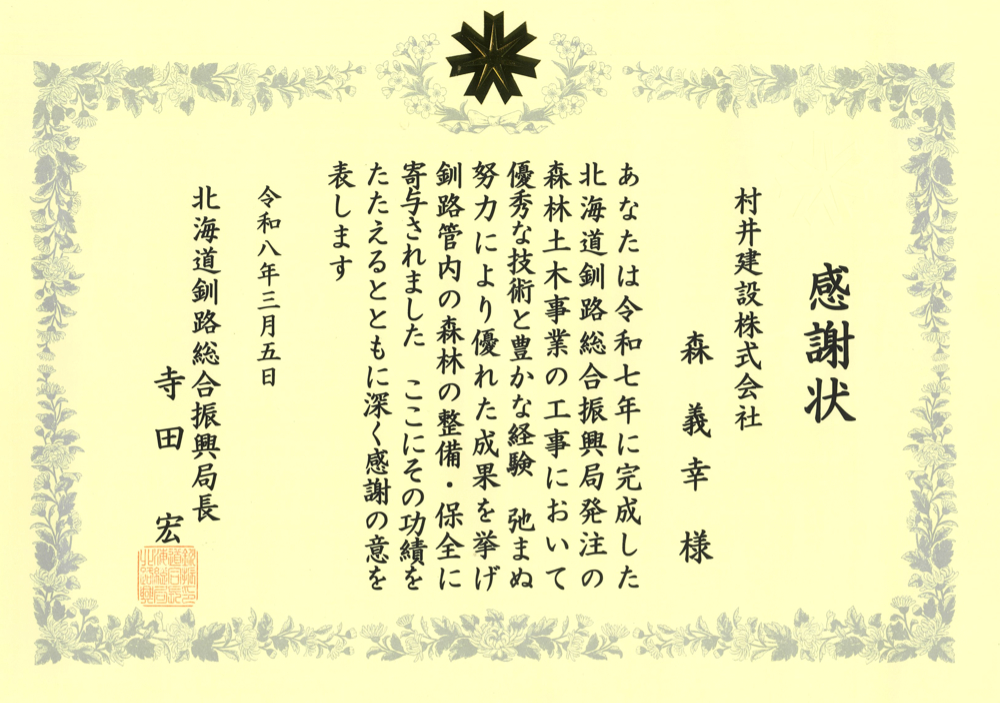 感謝状
村井建設株式会社
森義幸様
あなたは令和七年に完成した
北海道釧路総合振興局発注の
森林土木事業の工事において
優秀な技術と豊かな経験　弛まぬ
努力により優れた成果を挙げ
釧路管内の森林の整備・保全に
寄与されました　ここにその功績を
たたえるとともに深く感謝の意を
表します
令和八年三月五日
北海道釧路総合振興局長
寺田宏